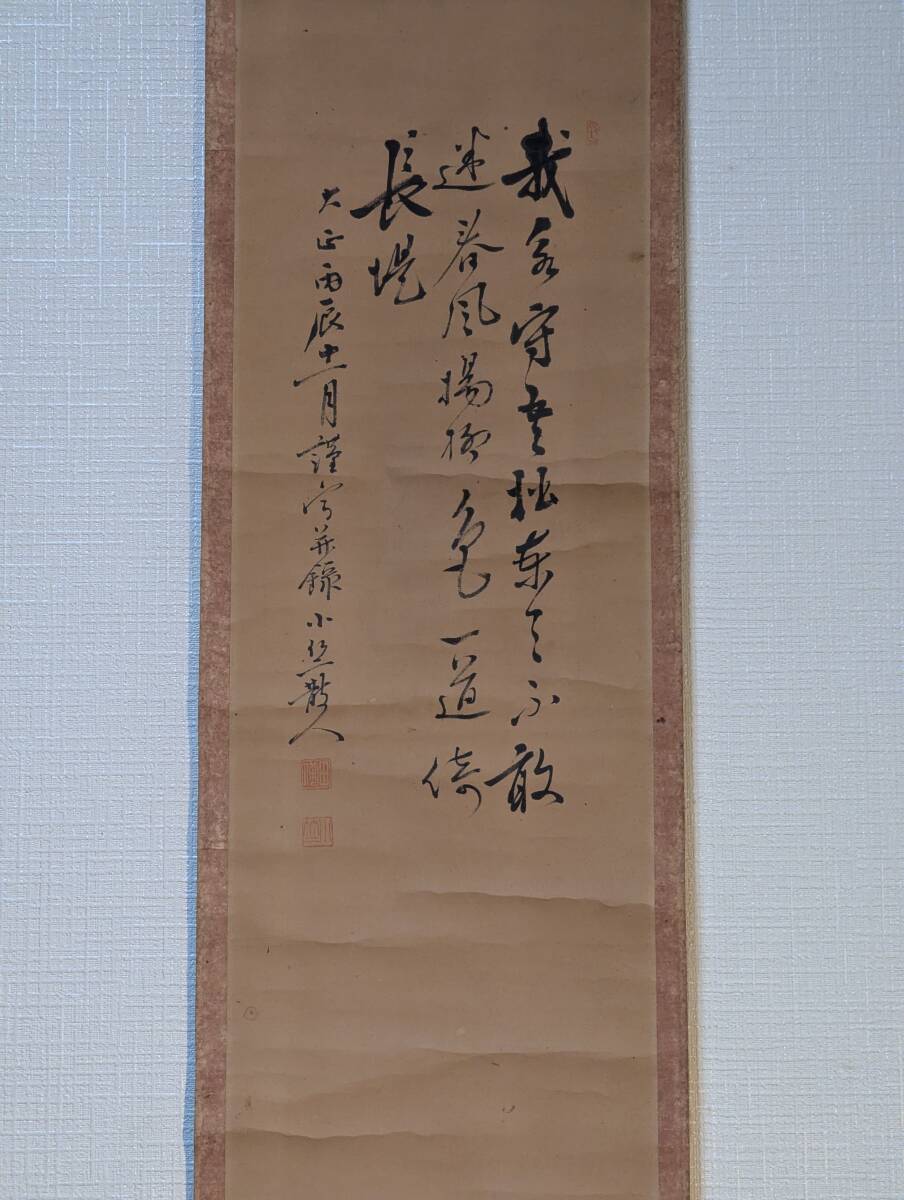 我守吾拙東西不敢
迷春風楊柳色一道倚
長堤
大正丙辰十一月謹寫并錄小散人